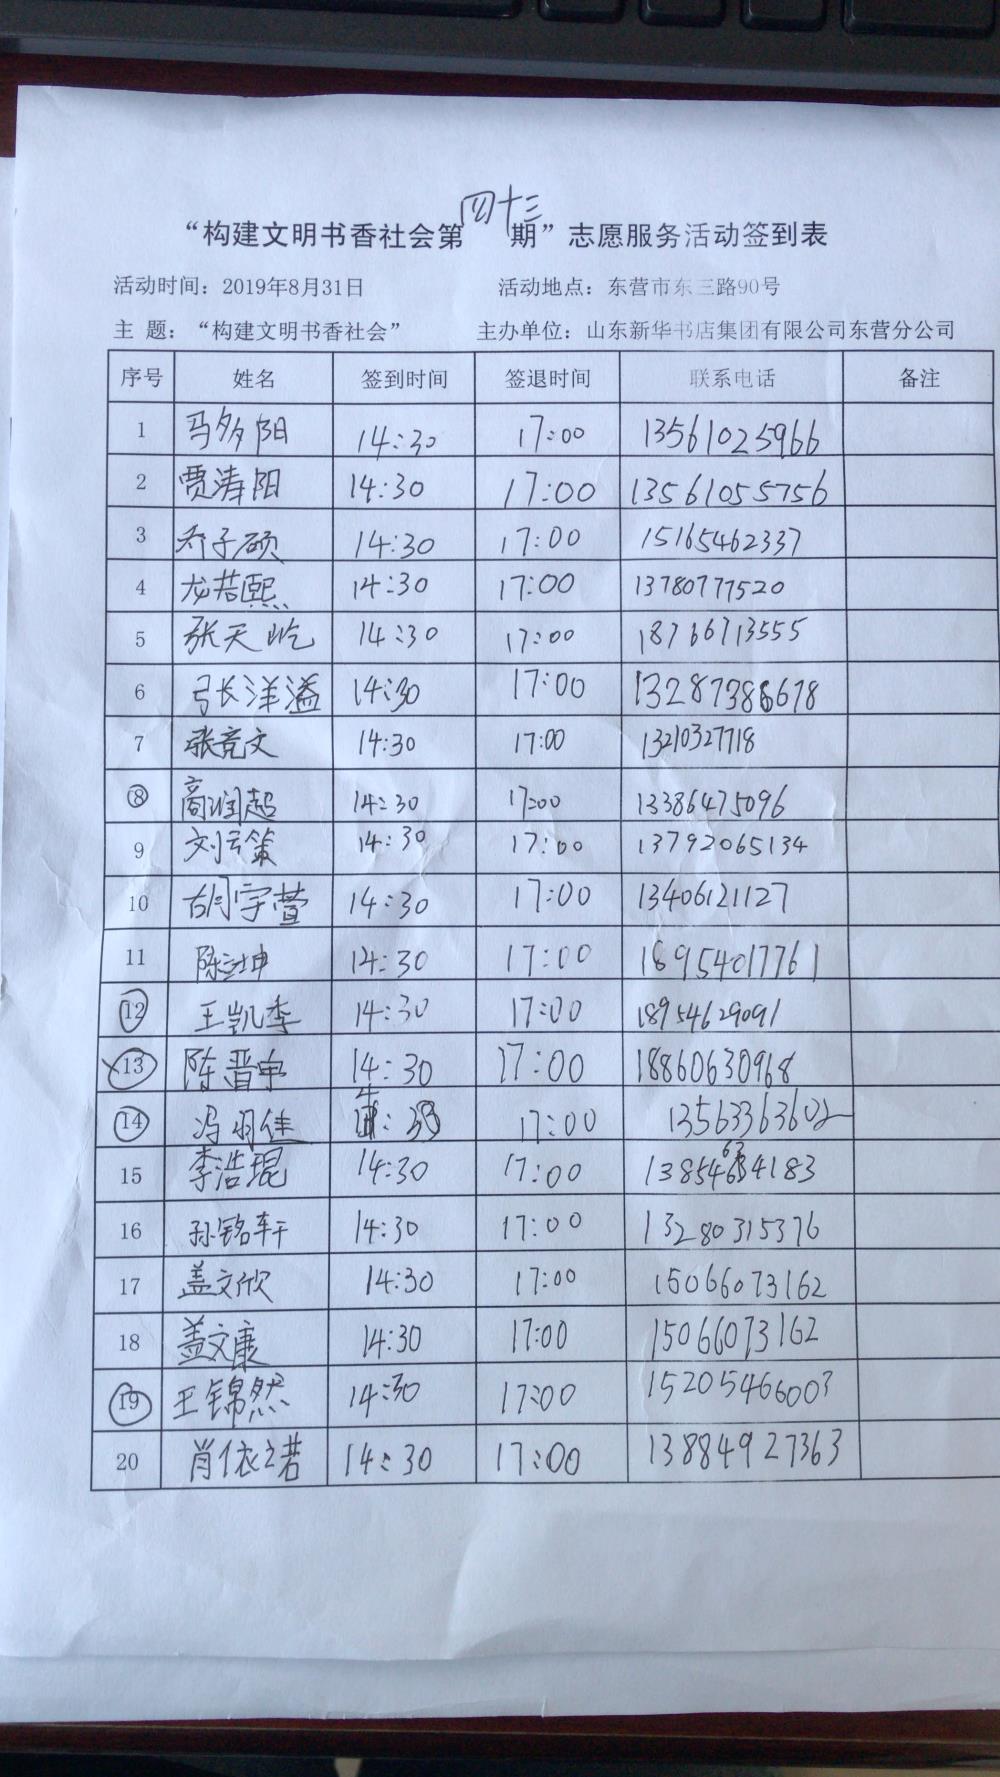 四十三
“构建文明书香社会第 期”志愿服务活动签到表
活动时间：2019年8月31日 活动地点：东营市东三路90号
主 题：“构建文明书香社会” 主办单位：山东新华书店集团有限公司东营分公司
序号 姓名 签到时间 签退时间 联系电话 备注
1 马多阳 14:30 17:00 13561025966
2 贾涛阳 14:30 17:00 13561055756
3 乔子硕 14:30 17:00 15165462337
4 龙若熙 14:30 17:00 13780777520
5 张天屹 14:30 17:00 18766713555
6 张洋溢 14:30 17:00
7 张竞文 14:30 17:00 13210327718
8 高润超 14:30 17:00 13386475096
9 刘云策 14:30 17:00 13792065134
10 胡宇萱 14:30 17:00 13406121127
11 14:30 17:00 18954017761
12 王凯季 14:30 17:00 18954629091
13 陈晋申 14:30 17:00 18860630968
14 冯羽佳 17:00 13563363602
15 李浩琨 14:30 17:00
16 孙铭轩 14:30 17:00 13280315376
17 盖文欣 14:30 17:00 15066073162
18 盖文康 14:30 17:00 15066073162
19 王锦然 14:30 17:00 15205466003
20 肖依若 14:30 17:00 13884927363